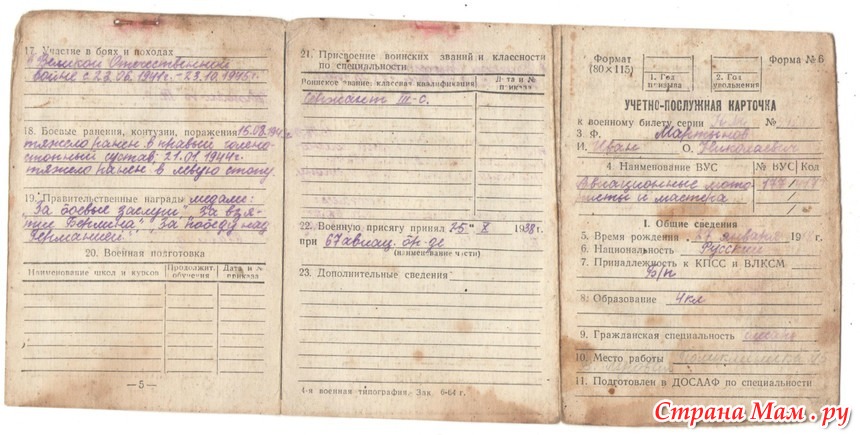 17. Участие в боях и походах
в Великой Отечественной
войне с 23.06.1941г.-23.10.1945г.
18. Боевые ранения, контузии, поражения 15.08.
тяжело ранен в правый голено-
стопный сустав; 21.01.1944г.
тяжело ранен в левую стопу.
19. Правительственные награды медали:
"За боевые заслуги", За взя-
тие Берлина", "За победу над
Германией".
20. Военная подготовка
Наименование школ и курсов
Продолжит. обучения
Дата и № приказа
— 5 —
21. Присвоение воинских званий и классности
по специальности
Воинское звание, классная квалификация
Дата и № приказа
Сержант
22. Военную присягу принял „25" X 1938г.
при 67 авиац. бр-де
(наименование части)
23. Дополнительные сведения
4-я военная типография. Зак. 6-64 г.
Формат
(80×115)
Форма № 6
1. Год
призыва
2. Год
увольнения
УЧЕТНО-ПОСЛУЖНАЯ КАРТОЧКА
к военному билету серии №
З. Ф. Мартынов
И. Иван О. Николаевич
4. Наименование ВУС
№ ВУС
Код
Авиационные мото-
ристы и мастера
I. Общие сведения
5. Время рождения января 19 г.
6. Национальность Русский
7. Принадлежность к КПСС и ВЛКСМ
б/п
8. Образование 4кл
9. Гражданская специальность слесарь
10. Место работы
11. Подготовлен в ДОСААФ по специальности
Страна Мам.ру